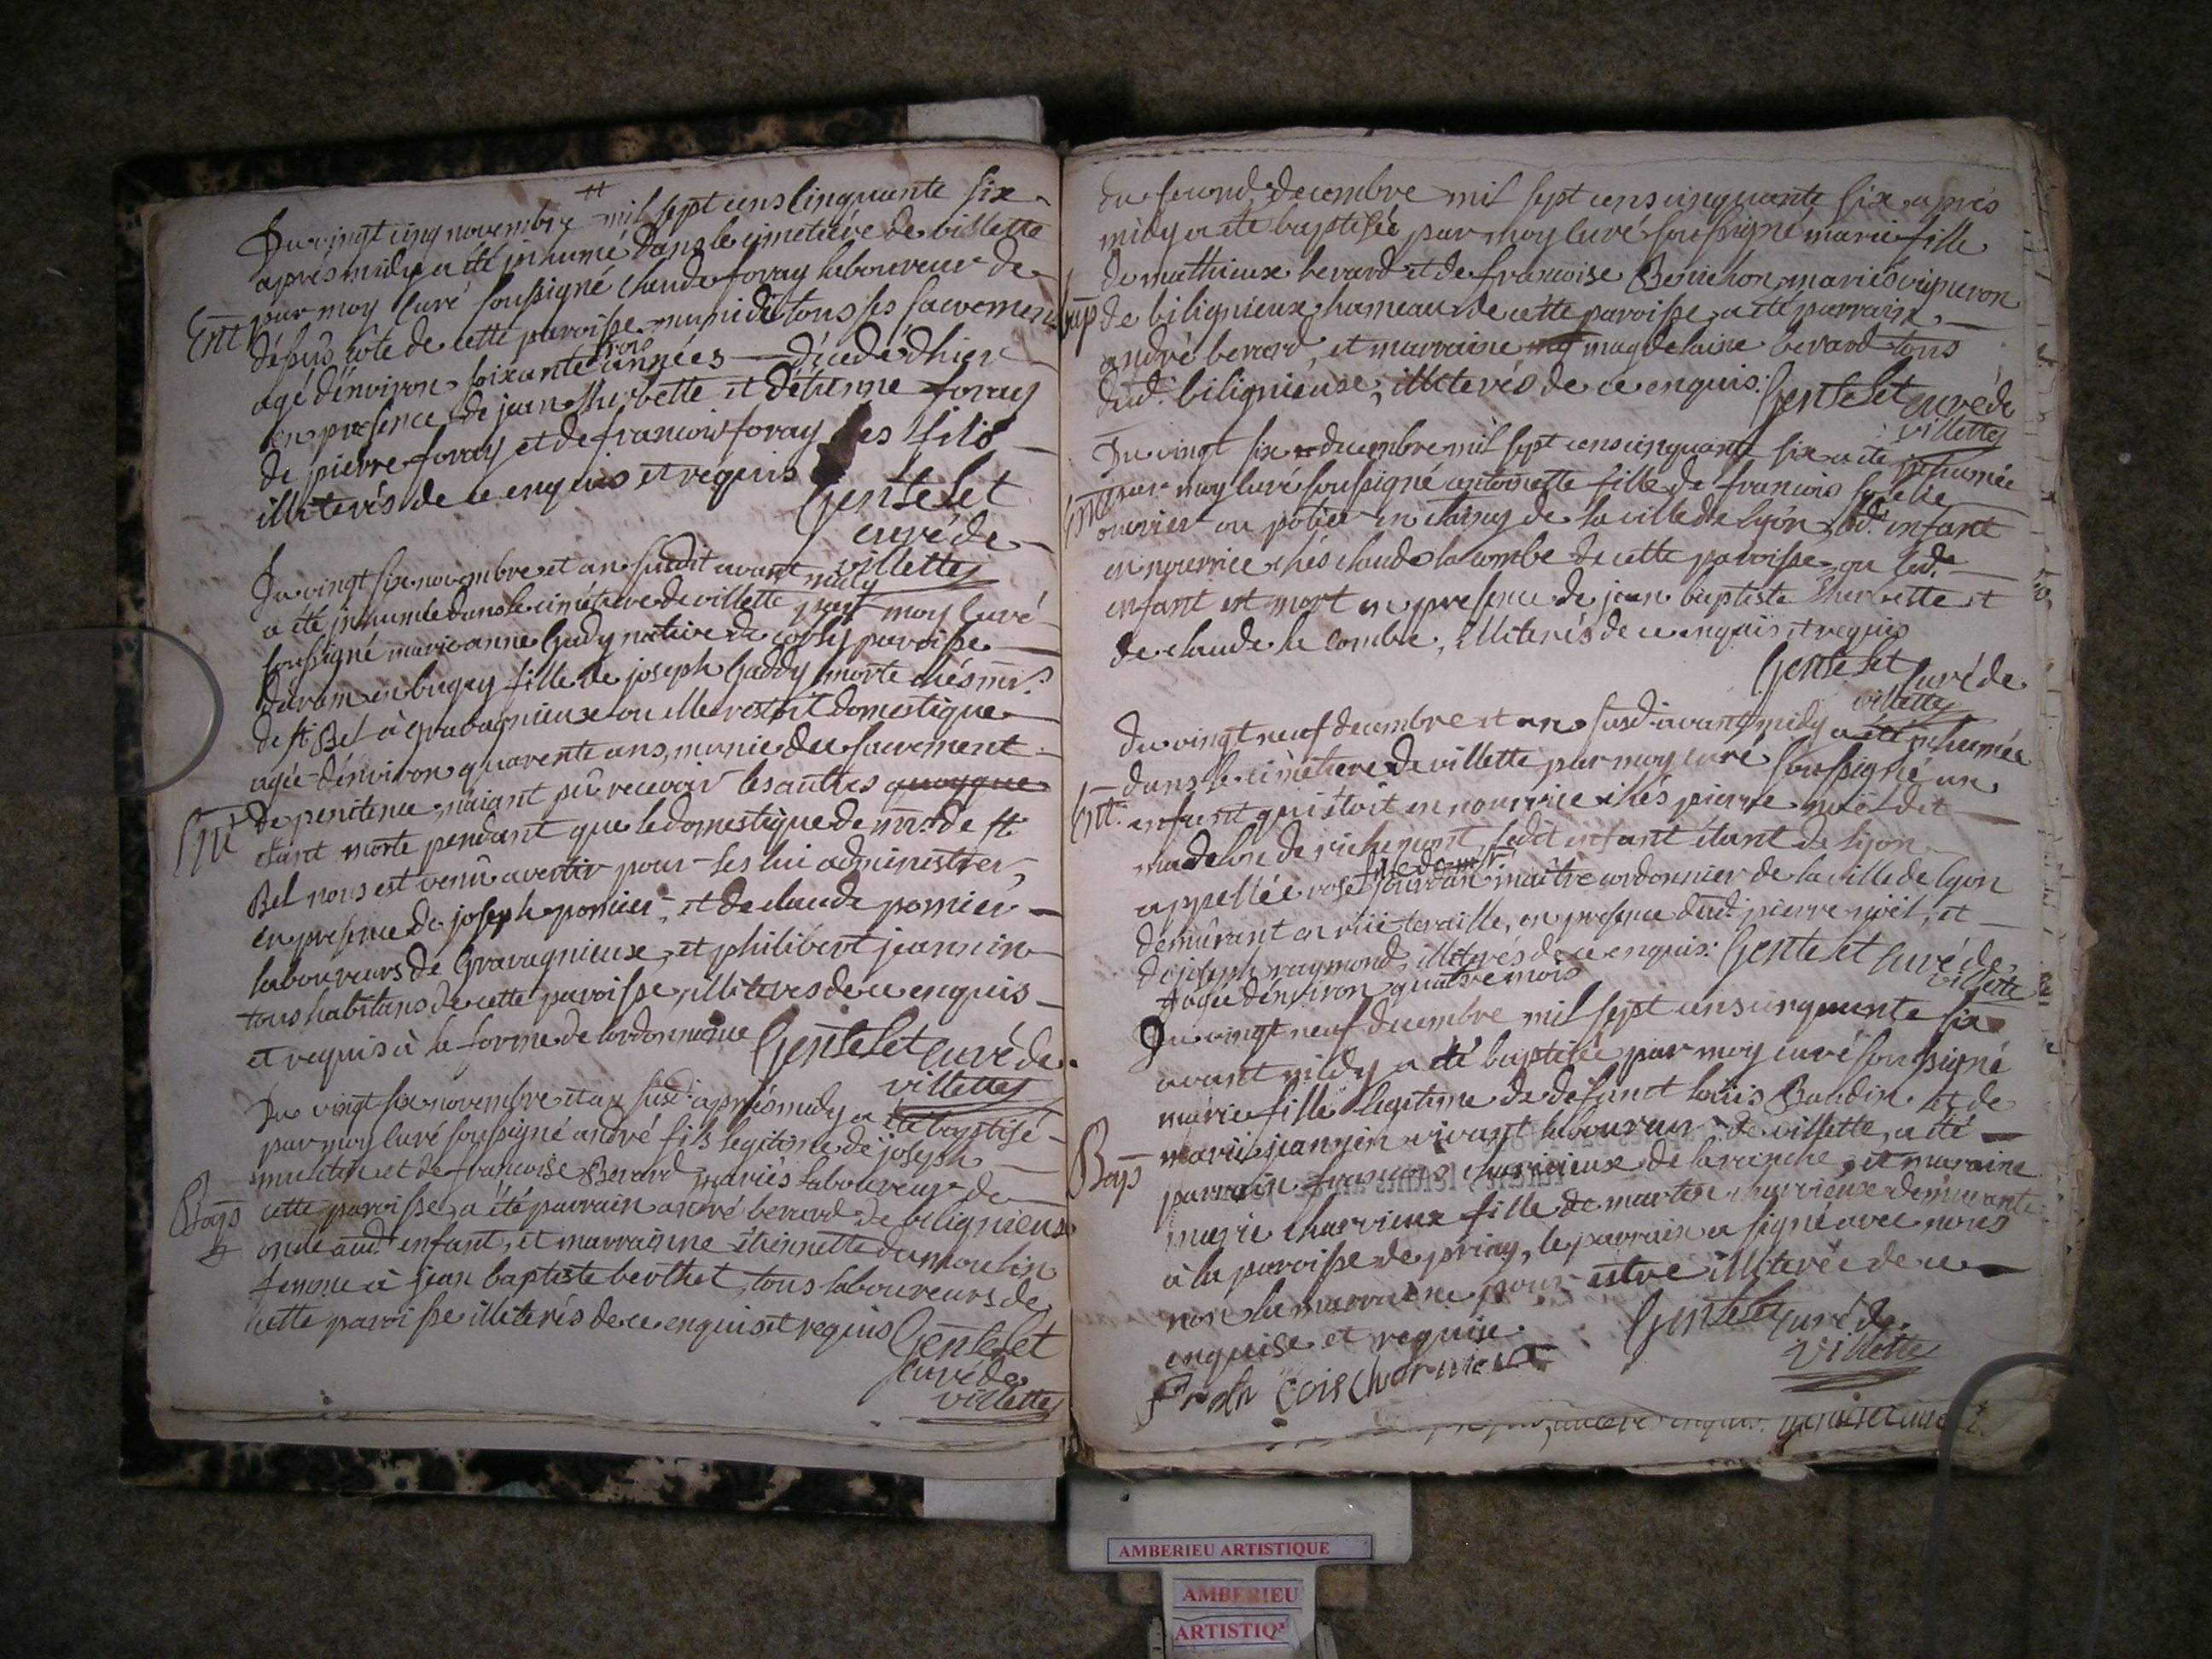 Du vingt cinq novembre mil sept cens cinquante six
aprés midy a été inhumé dans le cimetiére de villette
par moy curé soussigné claude foray laboureur de
Ent
dessus côte de cette paroisse muni de tous ses sacremens
trois
agé d'environ soixante années — décedé d'hier
en presence de jean therbette et d'étienne foray
de pierre foray et de francois foray ses fils
illiterés de ce enquis et requis
Gentelet
curé de
villette
Du vingt six novembre et an susdit avant midy
a été inhumée dans le cimetiere de villette par moy curé
soussigné marie anne Gady native de paroisse
en bugey fille de joseph Gaddy morte chés mr
de st Bel à gravagnieux ou elle restoit domestique
agée d'environ quarente ans, munie du sacrement
de penitence, n'aiant pû recevoir les autres quoyque
Ent
étant morte pendant que le domestique de mr de st
Bel nous est venû avertir pour les lui administrer,
en presence de joseph pomier, et de claude pomier
laboureurs de Gravagnieux, et philibert jeannin
tous habitans de cette paroisse, illiterés de ce enquis
et requis à la forme de l'ordonnance Gentelet curé de
villette
Du vingt six novembre et an susd. aprés midy a été baptisé
par moy curé soussigné andré fils legitime de joseph
et de francoise Berard mariés laboureur de
Bap
cette paroisse, a été parrain andré berard de bilignieux
oncle aud. enfant, et marraine étiennette dumoulin
femme à jean baptiste berthet, tous laboureurs de
cette paroisse illiterés de ce enquis et requis Gentelet
curé de
villette
Du second decembre mil sept cens cinquante six aprés
midy a été baptisée par moy curé soussigné marie fille
de mathieux berard et de francoise Benichon, mariés vigneron
bap
de bilignieux hameau de cette paroisse, a été parrain
andré berard, et marraine magdelaine berard tous
dud. bilignieux, illiterés de ce enquis. Gentelet curé de
villette
Du vingt six decembre mil sept cens cinquante six a été inhumée
Ent
par moy curé soussigné antoinette fille de francois
ouvrier ou potier en de la ville de lyon, led. enfant
en nourrice chés claude la combe de cette paroisse ou led.
enfant est mort en presence de jean baptiste therbette et
de claude la combe, illiterés de ce enquis et requis
Gentelet curé de
villette
Du vingt neuf decembre et an susd. avant midy a été inhumée
dans le cimetiere de villette par moy curé soussigné un
Ent.
enfant qui étoit en nourrice chés pierre noël dit
madelon de richemont, ledit enfant étant de lyon
fille de mr
appellée rose jourdan maître cordonnier de la ville de lyon
demeurant en rüe teraille, en presence dud. pierre noël, et
de joseph raymond, illiterés de ce enquis. Gentelet curé de
villette
agée d'environ quatre mois
Du vingt neuf decembre mil sept cens cinquante six
avant midy a été baptisée par moy curé soussigné
marie fille legitime de defunct loüis Baudin et de
marie jeannin vivant laboureur de villette, a été
Bap
parrain francois charvieux de la ranche, et maraine
marie charvieux fille de martin charvieux demeurante
à la paroisse de priay, le parrain a signé avec nous
non la marraine pour estre illiterée de ce
enquise et requise.
Gentelet curé de
villette
Fran Cois Charvieux
AMBERIEU ARTISTIQUE
AMBERIEU
ARTISTIQ